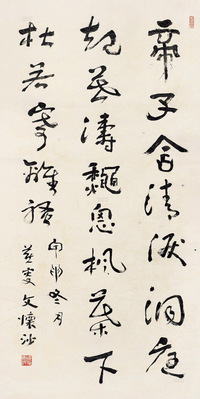 帝子含清淚洞庭
起暮濤息楓葉下
杜若寄離騷
申冬月
燕叟文懷沙